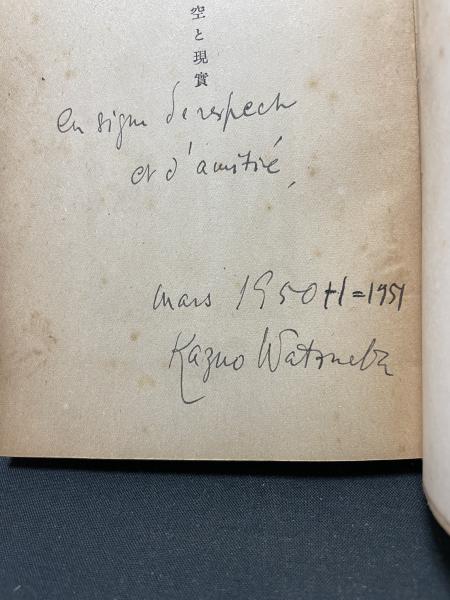 空と現實
en signe de respect
et d'amitié,
mars 1950+1=1951
Kazuo Watanabe